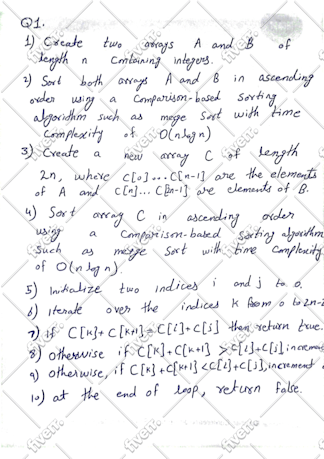 Q1.
1) Create two arrays A and B of
length n containing integers.
2) Sort both arrays A and B in ascending
order using a comparison-based sorting
algorithm such as merge sort with time
complexity of O(n log n)
3) Create a new array C of length
2n, where C[0]...C[n-1] are the elements
of A and C[n]... C[2n-1] are elements of B.
4) Sort array C in ascending order
using a comparison-based sorting algorithm
such as merge sort with time complexity
of O(n log n).
5) Initialize two indices i and j to 0.
6) iterate over the indices k from 0 to 2n-2
7) if C[k]+C[k+1]=C[i]+C[j] then return true.
8) otherwise if C[k]+C[k+1] >C[i]+C[j] increment
9) otherwise, if C[k]+C[k+1]<C[i]+C[j], increment
10) at the end of loop, return false.